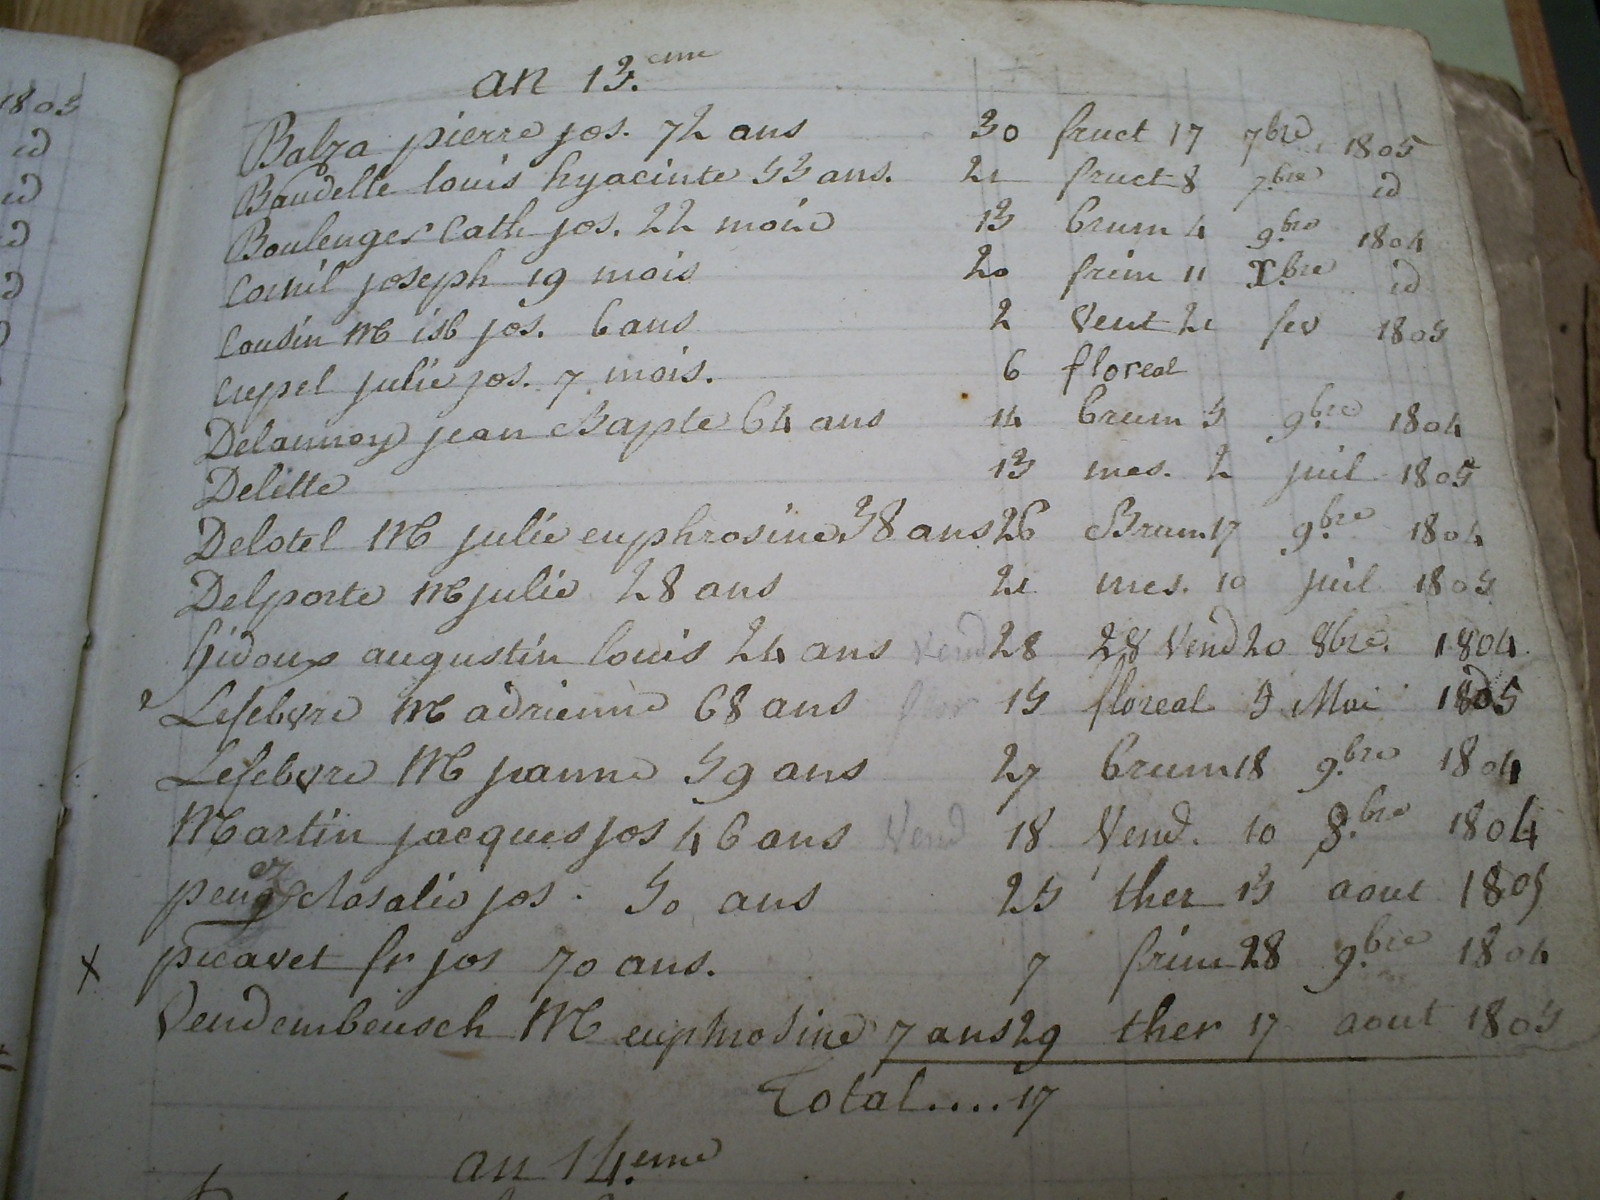 1805
id
id
id
id
an 13.eme
Balza pierre jos. 72 ans 30 fruct 17 7bre 1805
Baudelle louis hyacinte 53 ans. 21 fruct 8 7.bre id
Boulenger Cath jos. 22 mois 13 brum 4 9.bre 1804
Cornil joseph 19 mois 20 frim 11 X.bre id
Cousin M isb jos. 6 ans 2 Vent 21 fev 1805
Crepel julie jos. 7 mois. 6 floreal
Delannoy jean Bapte 64 ans 14 brum 5 9.bre 1804
Delette 13 mes. 2 juil 1805
Delotel M julie euphrosine 38 ans 26 Brum 17 9.bre 1804
Delporte M julie 28 ans 21 mes. 10 juil 1805
hidoux augustin louis 24 ans Vend 28 28 Vend 20 8bre. 1804
Lefebvre M adrienne 68 ans flor 15 floreal 5 Mai 1805
Lefebvre M jeanne 59 ans 27 brum 18 9.bre 1804
Martin jacques jos 46 ans Vend 18 Vend. 10 8.bre 1804
Rosalie jos. 50 ans 25 ther 13 aout 1805
x picavet fr jos 70 ans. 7 frim 28 9.bre 1804
Vendembeusch M euphrosine 7 ans 29 ther 17 aout 1805
Total.... 17
an 14.eme